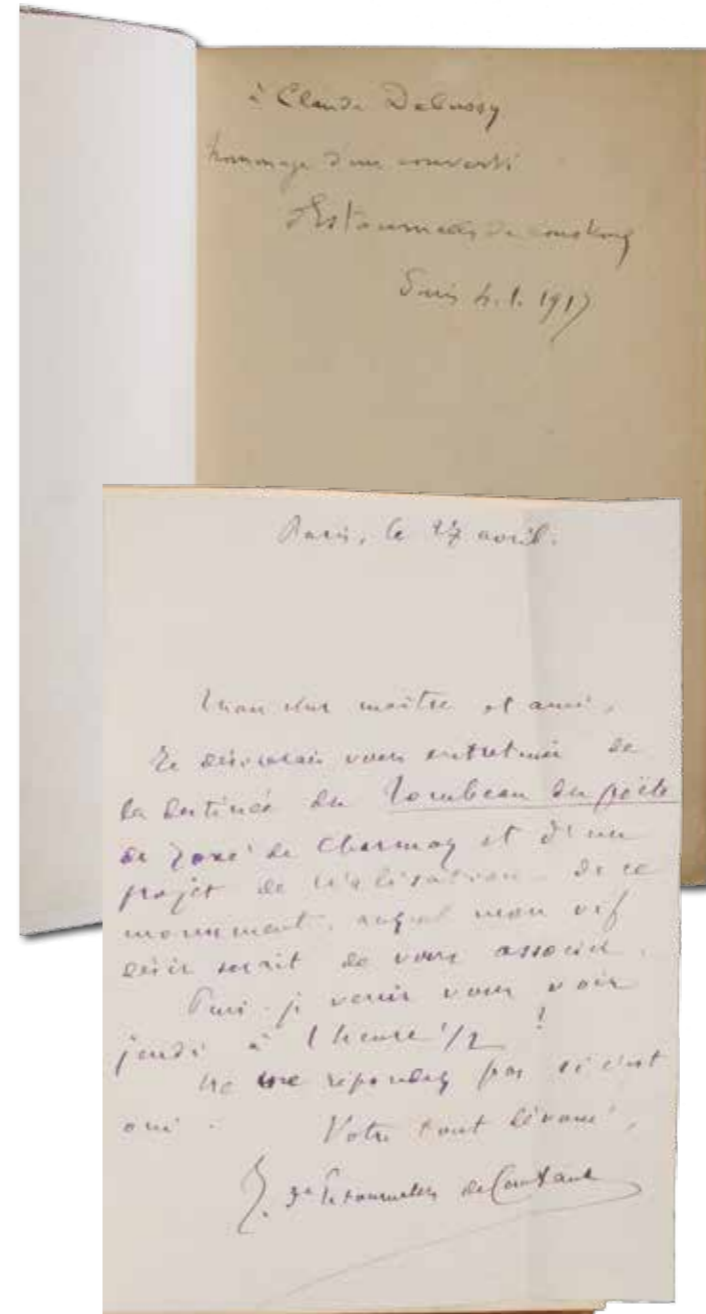 à Claude Debussy
hommage d'un converti
d'Estournelles de Constant
Paris 4.1.1917
Paris, le 27 avril.
Mon cher maître et ami,
Je désirerais vous entretenir de
la destinée du Tombeau du poète
de José de Charmoy et d'un
projet de réalisation de ce
monument, auquel mon vif
désir serait de vous associer.
Puis-je venir vous voir
jeudi à 1 heure 1/2 ?
Ne me répondez pas si c'est
oui. Votre tout dévoué,
d'Estournelles de Constant